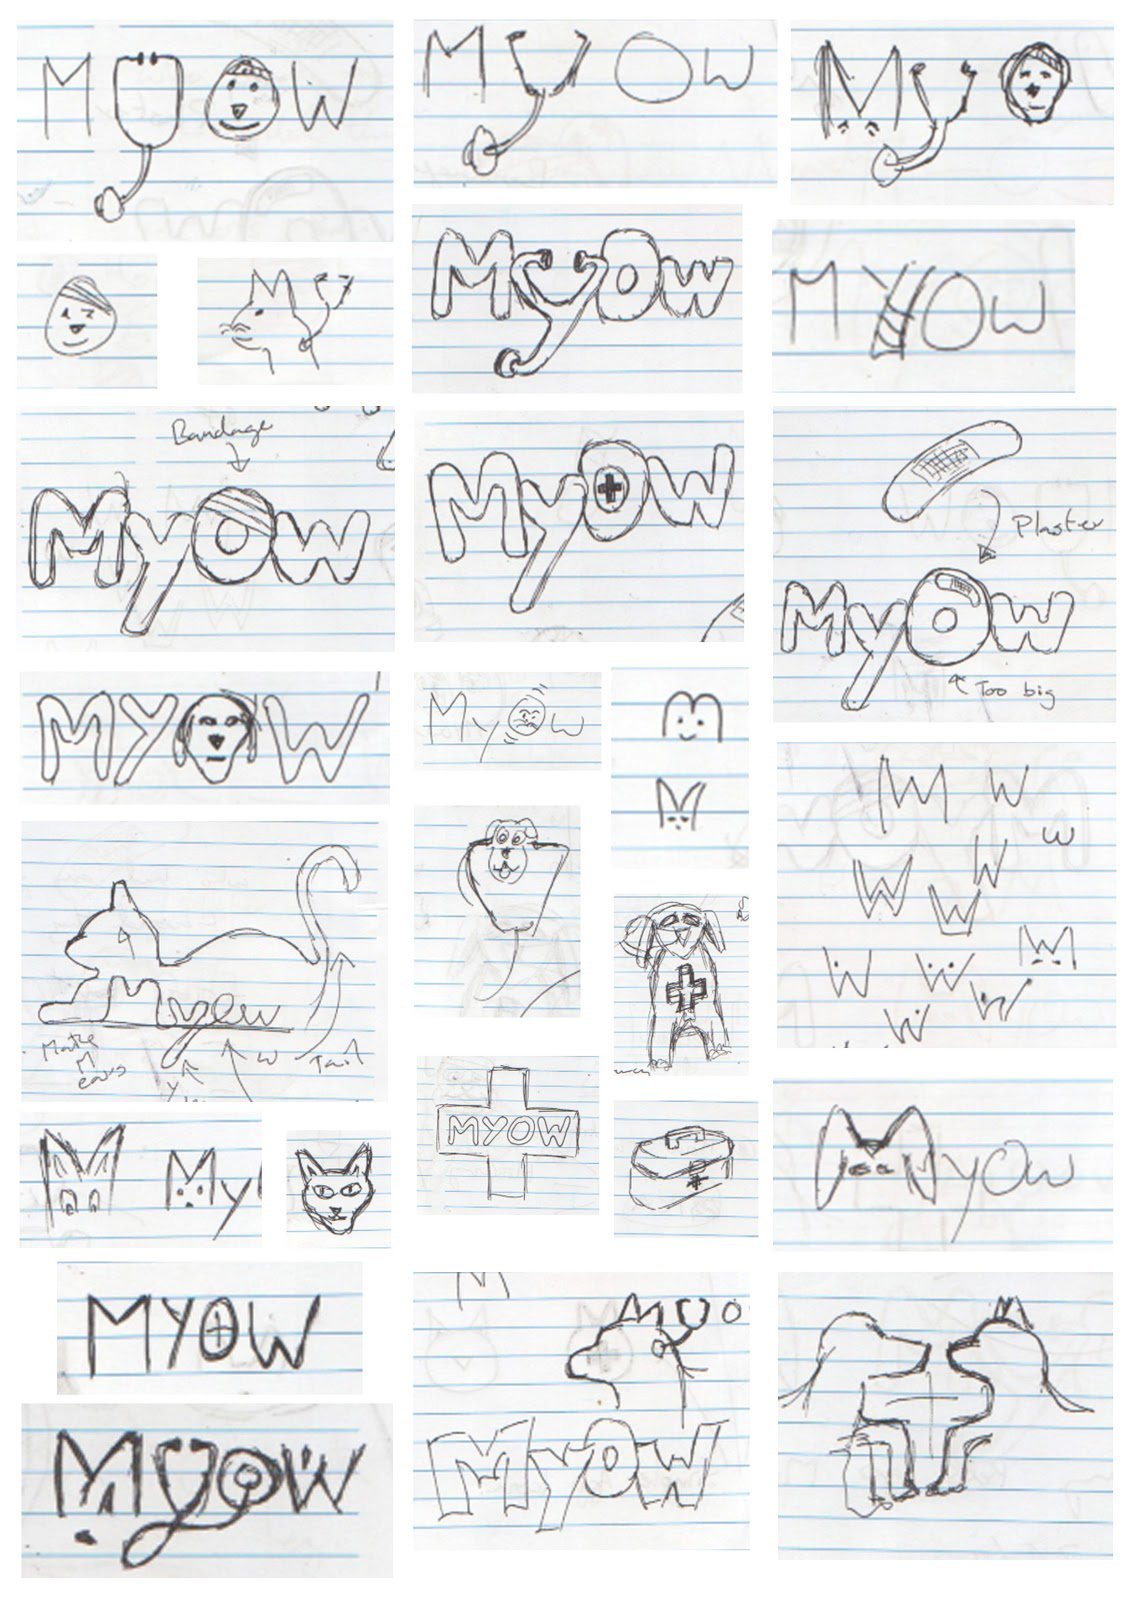 MYOW
MYOW
My
MYOW
MYOW
Bandage
MYOW
MYOW
Plaster
MYOW
Too big
MYOW
MYOW
M W
w
W W
W
W W M
W W
Myow
Make
M
ears
y
W
Tail
My
MYOW
MyOW
MYOW
MYOW
M
M y O
MYOW